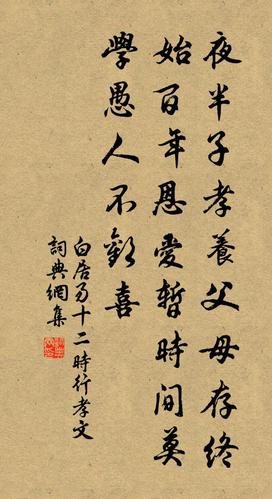 夜半子孝養父母存終
始百年恩愛暫時間莫
學愚人不歡喜
白居易十二時行孝文
詞典網集